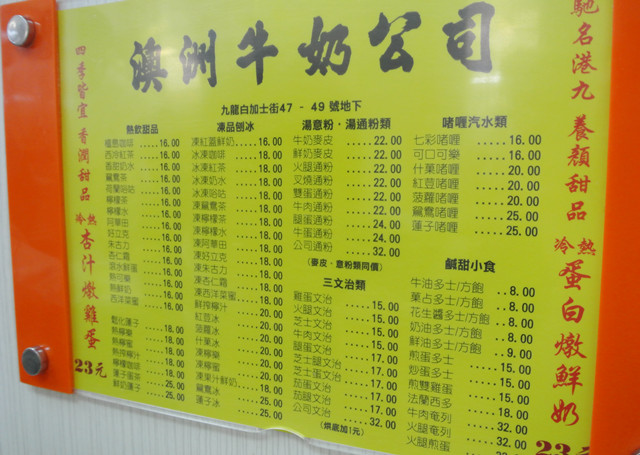 澳洲牛奶公司
九龍白加士街47 - 49 號地下
四季皆宜 香潤甜品
冷熱 杏汁燉雞蛋
23元
熱飲甜品
福島咖啡 .....16.00
西冷紅茶 .....16.00
香甜奶水 .....16.00
鴛鴦茶 .....16.00
荷蘭咕咕 .....16.00
檸檬茶 .....16.00
檸檬水 .....16.00
阿華田 .....16.00
好立克 .....16.00
朱古力 .....16.00
杏仁霜 .....16.00
滾水鮮蛋 .....16.00
熱可樂 .....16.00
熱鮮奶 .....16.00
西洋菜蜜 .....16.00
熱檸樂 .....18.00
熱檸蜜 .....18.00
鮮奶蓮子 .....25.00
凍品刨冰
凍紅荳鮮奶 .....16.00
冰凍咖啡 .....18.00
冰凍紅茶 .....18.00
冰凍奶水 .....18.00
冰凍咕咕 .....18.00
凍鴛鴦茶 .....18.00
凍檸檬茶 .....18.00
凍檸檬水 .....18.00
凍阿華田 .....18.00
凍好立克 .....18.00
凍朱古力 .....18.00
凍杏仁霜 .....18.00
凍西洋菜蜜 .....18.00
鮮榨檸汁 .....20.00
紅荳冰 .....20.00
菠蘿冰 .....20.00
什菓冰 .....20.00
凍檸樂 .....20.00
凍檸蜜 .....20.00
凍果汁鮮奶 .....20.00
鴛鴦冰 .....25.00
蓮子冰 .....25.00
湯意粉．湯通粉類
牛奶麥皮 .....22.00
鮮奶麥皮 .....22.00
火腿通粉 .....22.00
叉燒通粉 .....22.00
雙蛋通粉 .....22.00
牛肉通粉 .....22.00
腿蛋通粉 .....24.00
牛蛋通粉 .....24.00
公司通粉 .....32.00
(麥皮、意粉類同價)
三文治類
雞蛋文治 .....15.00
火腿文治 .....15.00
芝士文治 .....15.00
牛肉文治 .....15.00
腿蛋文治 .....17.00
芝士腿文治 .....17.00
芝士蛋文治 .....17.00
茄蛋文治 .....17.00
茄腿文治 .....17.00
公司文治 .....32.00
(烘底加1元)
啫喱汽水類
七彩啫喱 .....16.00
可口可樂 .....16.00
什菓啫喱 .....20.00
紅荳啫喱 .....20.00
菠蘿啫喱 .....20.00
鴛鴦啫喱 .....25.00
蓮子啫喱 .....25.00
鹹甜小食
牛油多士/方飽 ..8.00
菓占多士/方飽 ..8.00
花生醬多士/方飽 ..8.00
奶油多士/方飽 ..8.00
鮮油多士/方飽 ..9.00
煎蛋多士 .....15.00
炒蛋多士 .....15.00
煎雙雞蛋 .....15.00
法蘭西多 .....18.00
牛肉奄列 .....32.00
火腿奄列 .....32.00
火腿煎蛋 .....32.00
馳名港九 養顏甜品
冷熱 蛋白燉鮮奶
23元